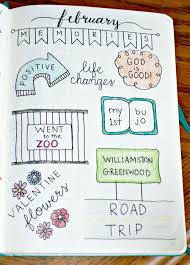 february
MEMORIES
POSITIVE
life
changes
GOD
is
GOOD!
my bu
1st jo
WENT
to the
ZOO
WILLIAMSTON
GREENWOOD
VALENTINE
flowers
ROAD
TRIP